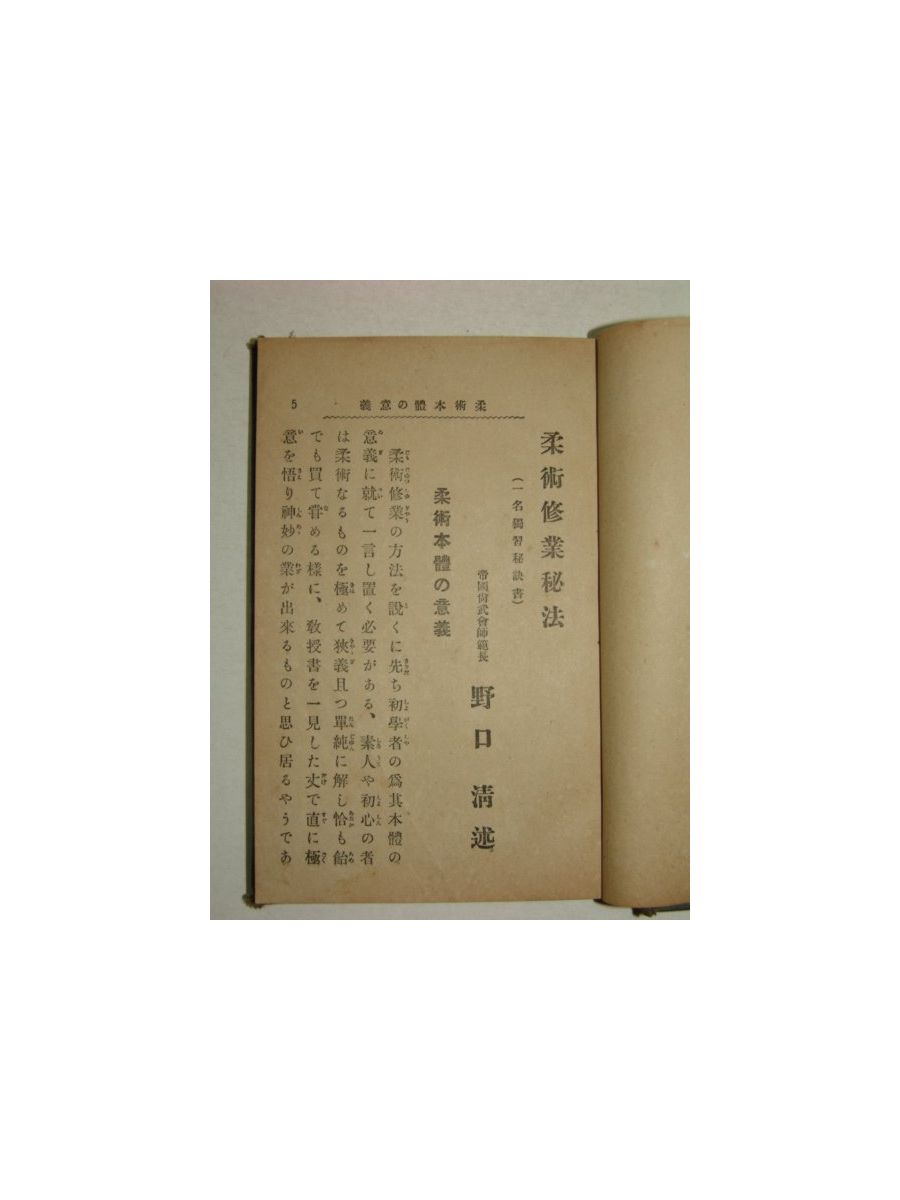 柔術本體の意義
5
柔術修業秘法
(一名獨習秘訣書)
帝國尚武會師範長
野口清述
柔術本體の意義
柔術修業の方法を說くに先ち初學者の爲其本體の
意義に就て一言し置く必要がある、素人や初心の者
は柔術なるものを極めて狹義且つ單純に解し恰も飴
でも買て甞める樣に、敎授書を一見した丈で直に極
意を悟り神妙の業が出來るものと思ひ居るやうであ